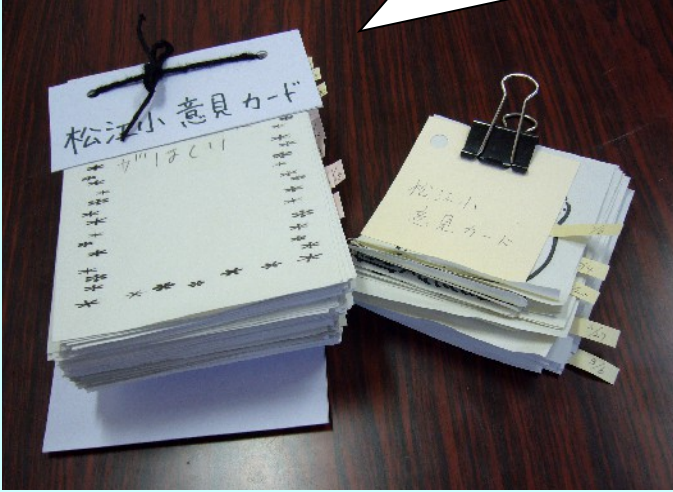 松江小 意見 カード
がはくり
松江小
意見カード